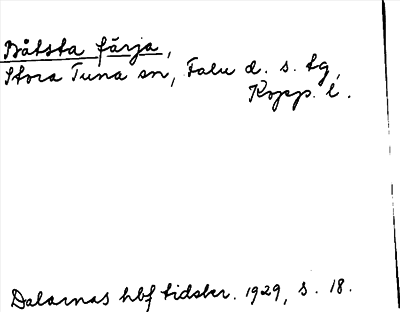 Båtsta färja,
Stora Tuna sn, Falu d. s. tg,
Kopp. l.
Dalarnas hbf tidskr. 1929, s. 18.